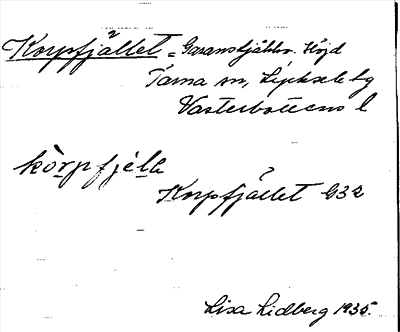 Korpfjället = Garanskjåhho. Höjd
Tärna sn, Lycksele lg
Västerbottens l
kòrpfjèlle
Korpfjället G32
Lisa Lidberg 1935.